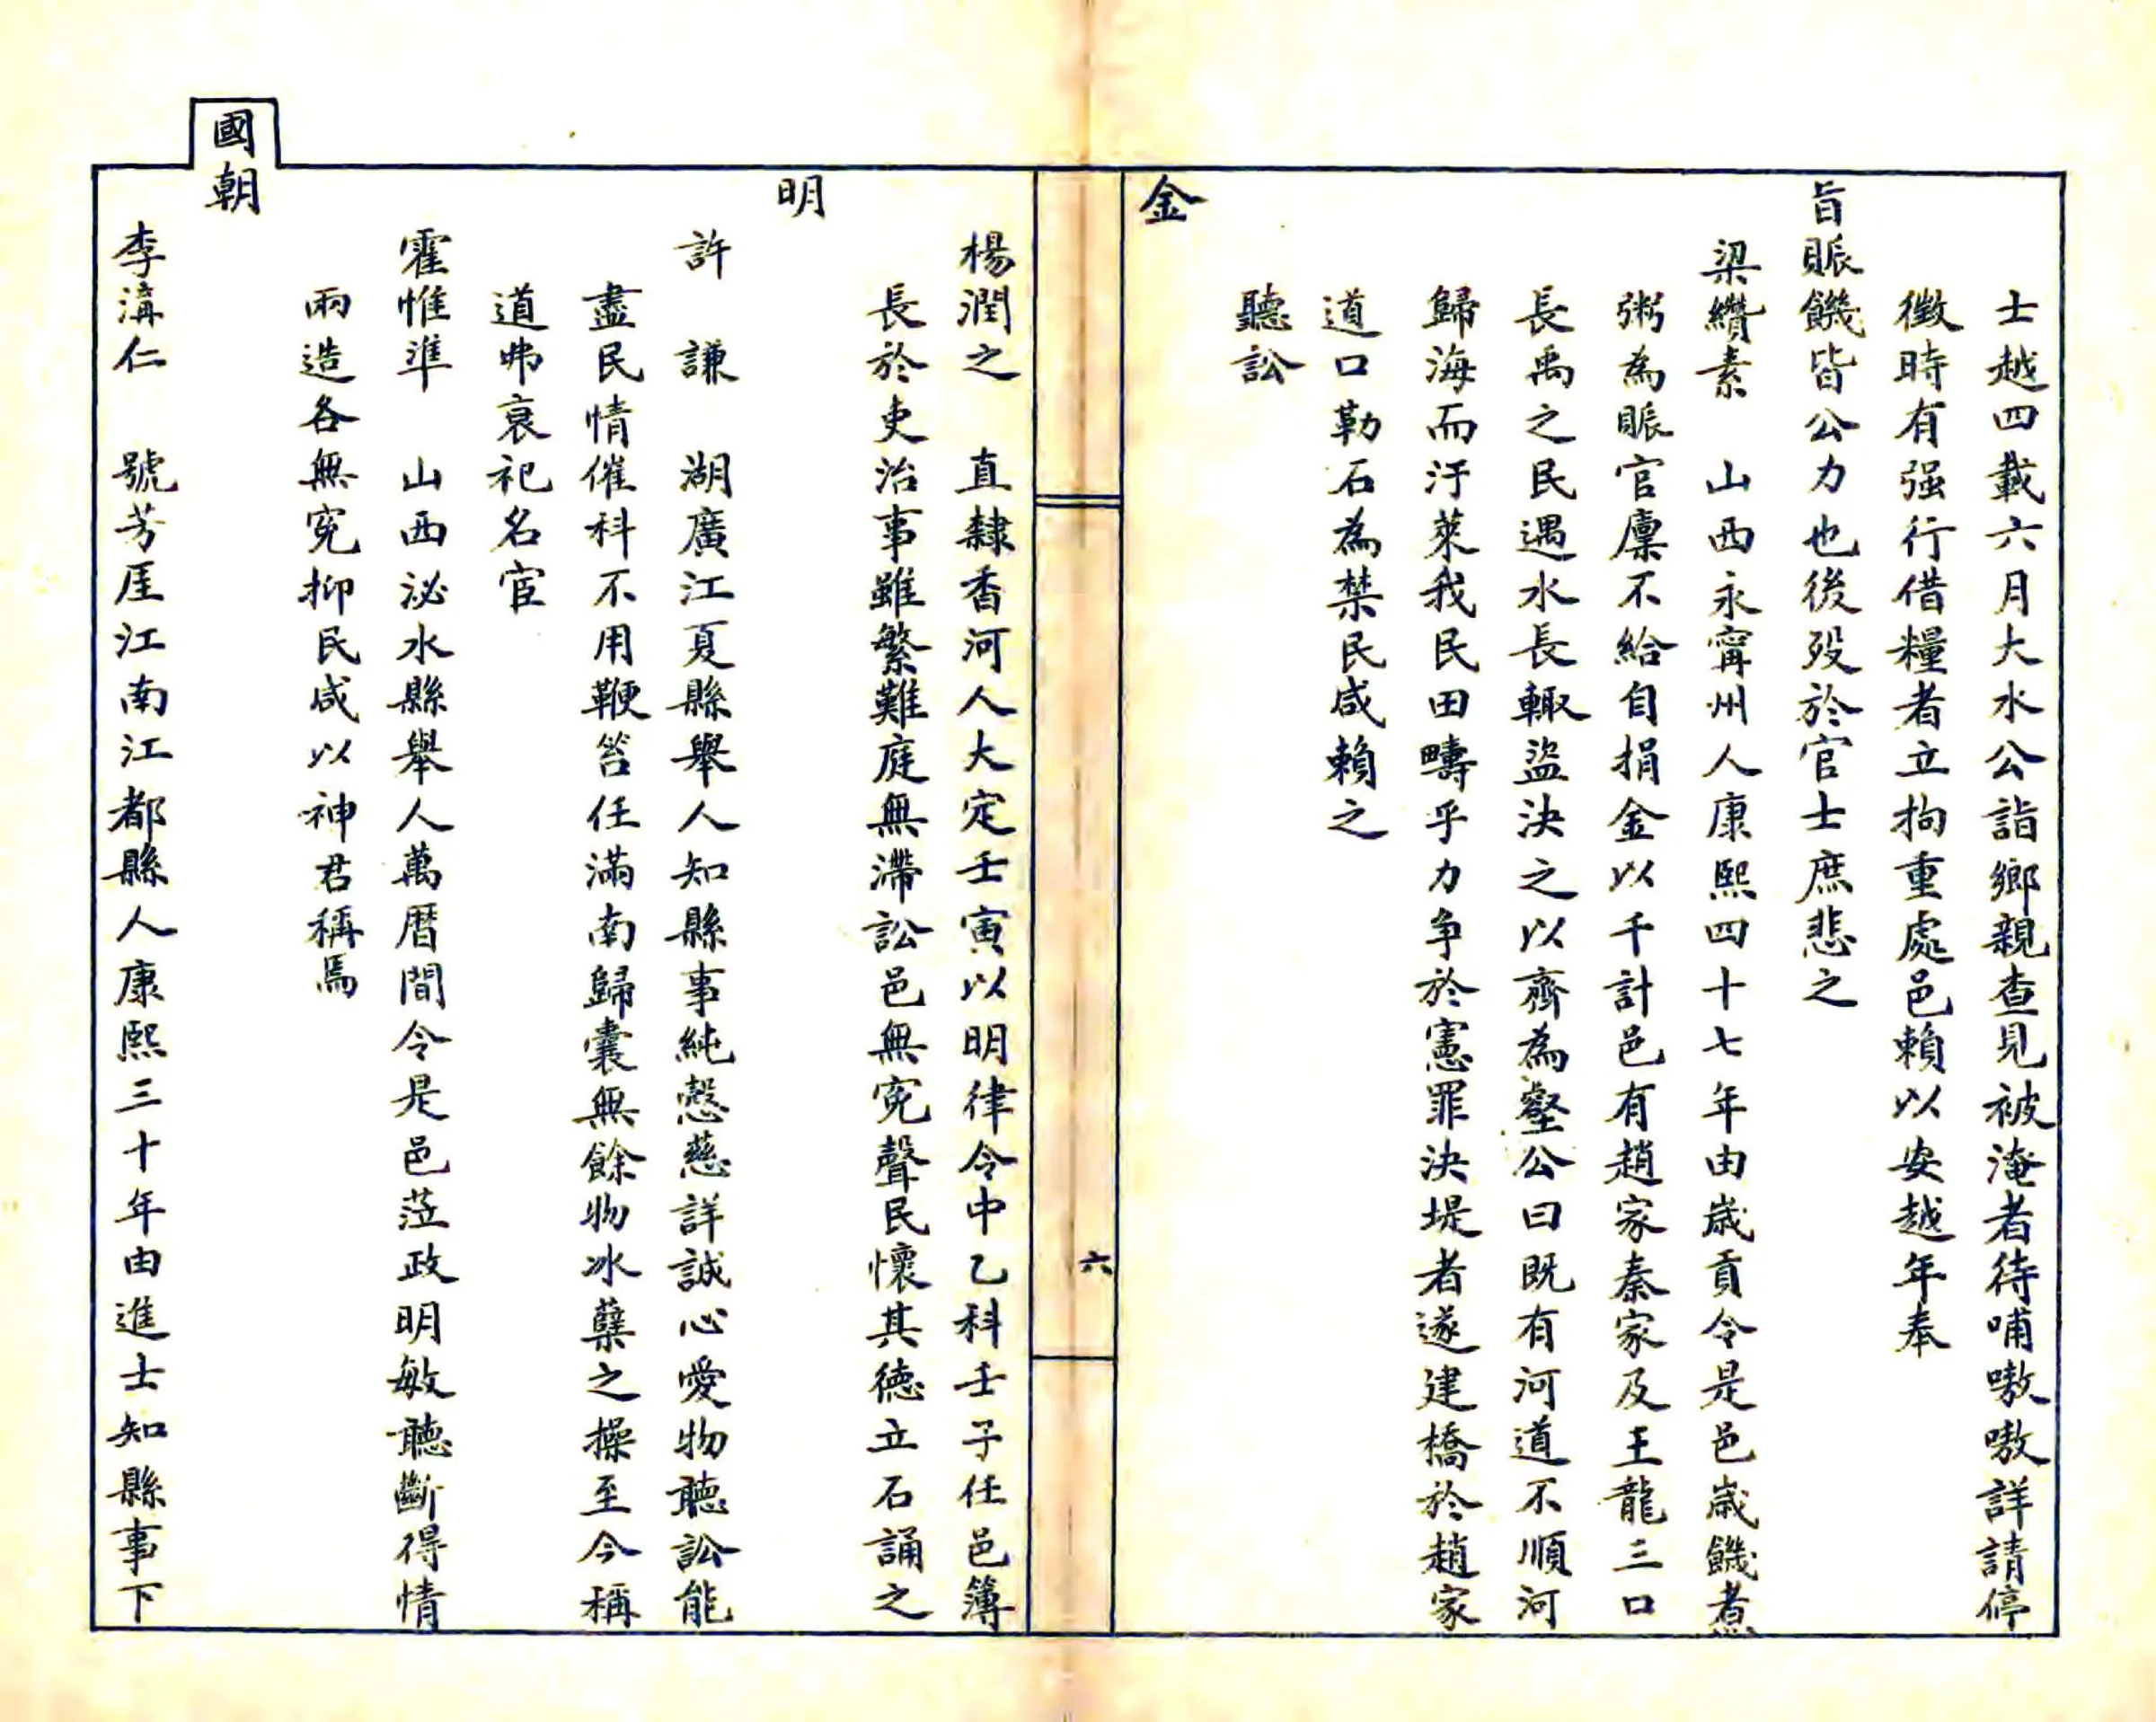 士越四載六月大水公詣鄉親查見被淹者待哺嗷嗷詳請停
徵時有强行借糧者立拘重處邑賴以安越年奉
旨賑饑皆公力也後歿於官士庶悲之
梁纘素　山西永寗州人康熙四十七年由歲貢令是邑歲饑煮
粥為賑官廩不給自捐金以千計邑有趙家秦家及王龍三口
長禹之民遇水長輙盜決之以齊為壑公曰既有河道不順河
歸海而汙萊我民田疇乎力争於憲罪決堤者遂建橋於趙家
道口勒石為禁民咸賴之
聽訟
金
六
楊潤之　直隸香河人大定壬寅以明律令中乙科壬子任邑簿
長於吏治事雖繁難庭無滯訟邑無寃聲民懷其德立石誦之
明
許　謙　湖廣江夏縣舉人知縣事純慤慈詳誠心愛物聽訟能
盡民情催科不用鞭笞任滿南歸囊無餘物冰蘖之操至今稱
道弗衰祀名宦
霍惟準　山西泌水縣舉人萬曆間令是邑蒞政明敏聽斷得情
兩造各無寃抑民咸以神君稱焉
國朝
李溝仁　號芳厓江南江都縣人康熙三十年由進士知縣事下